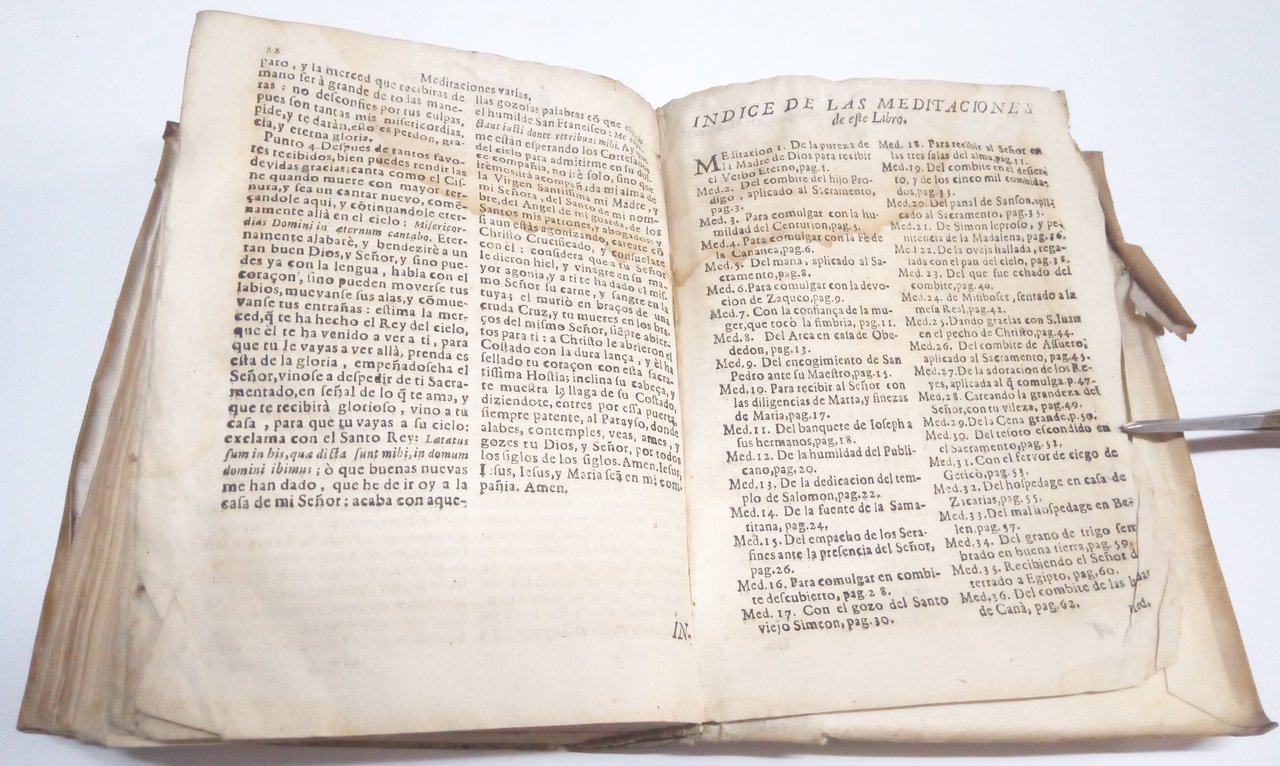 88
Meditaciones varias,
paro, y la merced que recibiras de
mano serà grande de to las mane-
ras: no desconfies por tus culpas,
pues son tantas mis misericordias,
pide, y te daràn, esto es perdon, gra-
cia, y eterna gloria.
Punto 4. Despues de tantos favo-
res recibidos, bien puedes rendir las
devidas gracias; canta como el Cis-
ne quando muere con mayor ter-
nura, y sea un cantar nuevo, comē-
çandole aqui, y cōtinuandole eter-
namente allà en el cielo: Misericor-
dias Domini in eternum cantabo. Eter-
namente alabarè, y bendezirè a un
tan buen Dios, y Señor, y sino pue-
des ya con la lengua, habla con el
coraçon, sino pueden moverse tus
labios, muevanse sus alas, y cōmue-
vanse tus entrañas: estima la mer-
ced, q̄ te ha hecho el Rey del cielo,
que èl te ha venido a ver a ti, para
que tu le vayas a ver allà, prenda es
esta de la gloria, empeñadose ha el
Señor, vinose a despedir de ti Sacra-
mentado, en señal de lo q̄ te ama, y
que te recibirà glorioso, vino a tu
casa, para que tu vayas a su cielo:
exclama con el Santo Rey: Lætatus
sum in his, quæ dicta sunt mihi, in domum
domini ibimus; ò que buenas nuevas
me han dado, que he de ir oy a la
casa de mi Señor: acaba con aque-
llas gozosas palabras cō que
el humilde San Francisco: Me
ctant iusti donec retribuas mihi.
me estàn esperando los Cortesanos
del cielo para admitirme en su
ce compañia, no irè solo, sino que
irèmosirà acompañada mi alma de
la Virgen Santissima mi Madre, y
mi Señora, del Santo de mi nom-
bre, del Angel de mi guarda, de los
Santos mis patrones, y abogados: y
si aun estàs agonizando, carcate cō
con èl: considera que a tu Señor
Christo Crucificado, y consuelate
le dieron hiel, y vinagre en su ma
yor agonia, y a ti te ha dado el mis-
mo Señor su carne, y sangre en la
tuya; el muriò en braços de una
cruda Cruz, y tu mueres en los bra-
ços del mismo Señor, siēpre abier-
tos para ti: a Christo le abrieron el
Costado con la dura lança, y èl ha
sellado tu coraçon con esta sacra-
tissima Hostia; inclina su cabeça, y
te muestra la llaga de su Costado,
diziendote, entres por essa puerta,
siempre patente, al Parayso, donde
alabes, contemples, veas, ames, y
gozes tu Dios, y Señor, por todos
los siglos de los siglos. Amen, Iesus,
Iesus, Iesus, y Maria seā en mi com-
pañia. Amen.
IN.
INDICE DE LAS MEDITACIONES
de este Libro.
MEditacion 1. De la pureza de
la Madre de Dios para recibir
el Verbo Eterno, pag.1.
Med.2. Del combite del hijo Pro-
digo, aplicado al Sacramento,
pag.3.
Med. 3. Para comulgar con la hu-
mildad del Centurion, pag.5.
Med.4. Para comulgar con la Fè de
la Cananea, pag.6.
Med.5. Del mana, aplicado al Sa-
cramento, pag.8.
Med.6. Para comulgar con la devo-
cion de Zaqueo, pag.9.
Med.7. Con la confiança de la mu-
ger, que tocò la fimbria, pag. 11.
Med.8. Del Arca en casa de Obe-
dedon, pag.13.
Med.9. Del encogimiento de San
Pedro ante su Maestro, pag.15.
Med.10. Para recibir al Señor con
las diligencias de Marta, y finezas
de Maria, pag.17.
Med.11. Del banquete de Ioseph a
sus hermanos, pag.18.
Med.12. De la humildad del Publi-
cano, pag.20.
Med.13. De la dedicacion del tem-
plo de Salomon, pag.22.
Med.14. De la fuente de la Sama-
ritana, pag.24.
Med.15. Del empacho de los Sera-
fines ante la presencia del Señor,
pag.26.
Med.16. Para comulgar en combi-
te descubierto, pag.28.
Med. 17. Con el gozo del Santo
viejo Simeon, pag.30.
Med. 18. Para recibir al Señor en
las tres salas del alma, pag.11.
Med.19. Del combite en el desier-
to, y de los cinco mil combida-
dos, pag.33.
Med.20. Del panal de Sanson, apli
cado al Sacramento, pag.35.
Med.21. De Simon leproso, y pe-
nitencia de la Madalena, pag.36.
Med 22. De la oveja hallada, y rega-
lada con el pan del cielo, pag.38.
Med.23. Del que fue echado del
combite, pag.40.
Med.24. de Mifiboset, sentado a la
mesa Real, pag.42.
Med.25. Dando gracias con S. Iuan
en el pecho de Christo, pag.44.
Med.26. Del combite de Assuero,
aplicado al Sacramento, pag.45.
Med.27. De la adoracion de los Re-
yes, aplicada al q̄ comulga p.47.
Med.28. Careando la grandeza del
Señor, con tu vileza, pag.49.
Med.29. De la Cena grande, p.50.
Med.30. Del tesoro escondido en
el Sacramento, pag.52.
Med.31. Con el fervor de ciego de
Gericò, pag.53.
Med.32. Del hospedage en casa de
Zacarias, pag.55.
Med.33. Del mal hospedage en Be-
len, pag.57.
Med.34. Del grano de trigo sem
brado en buena tierra, pag.59.
Med.35. Recibiendo el Señor d
terrado a Egipto, pag.60.
Med.36. Del combite de las bodas
de Canà, pag.62.
Med.